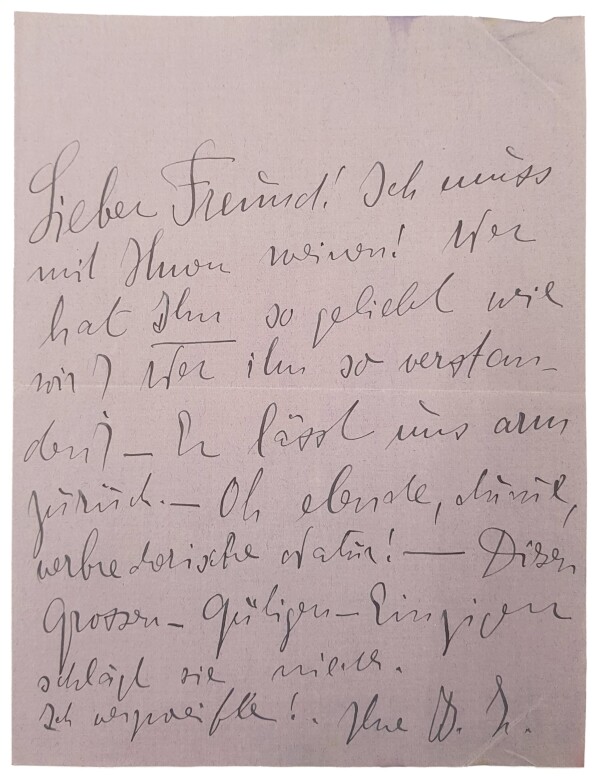 Lieber Freund! Ich muss
mit Ihnen weinen! Wer
hat Ihn so geliebt wie
wir? Wer ihn so verstan-
den? – Er lässt uns arm
zurück. – Oh elende,
verbrecherische Natur! — Diesen
Grossen – Gütigen – Einzigen
schlägt sie nieder.
Ich verzweifle! Ihre